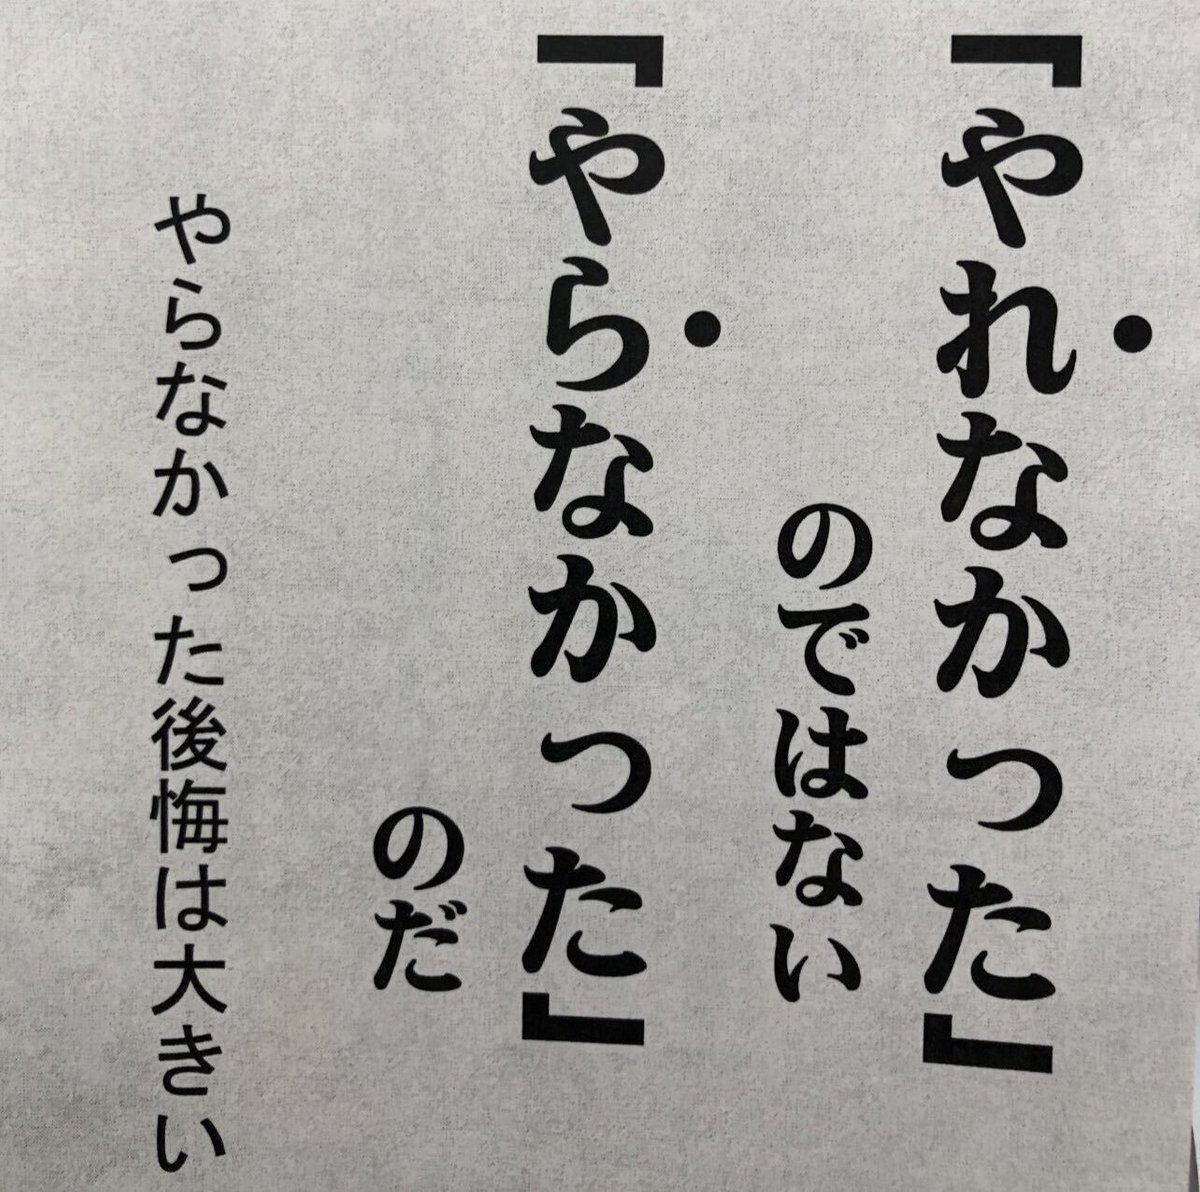 「やれなかった」
のではない
「やらなかった」
のだ
やらなかった後悔は大きい